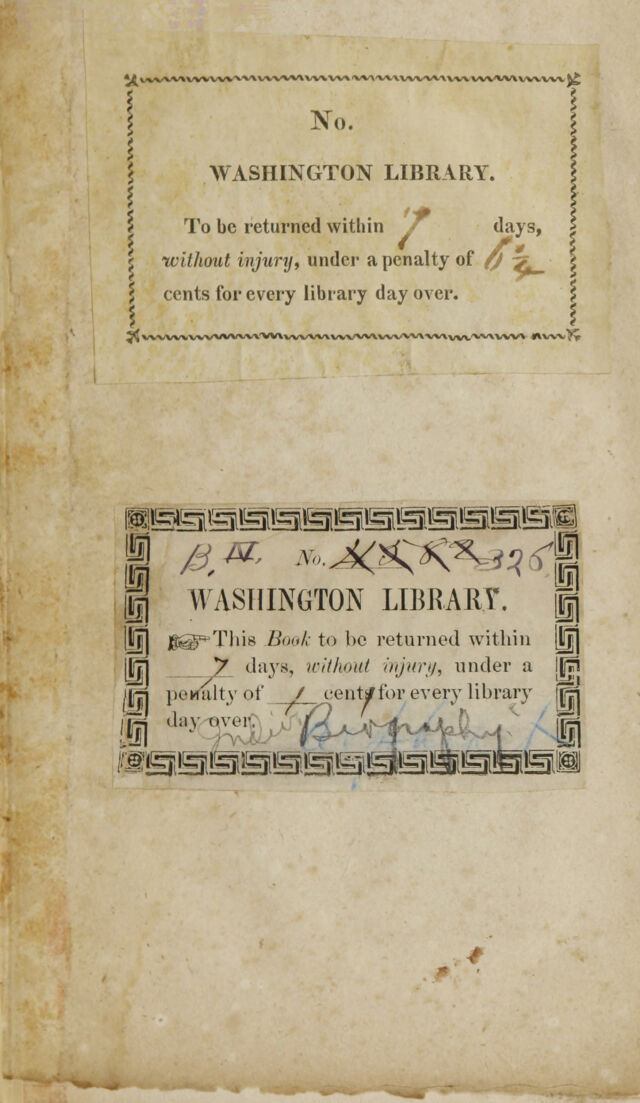 No.
WASHINGTON LIBRARY.
To be returned within 7 days,
without injury, under a penalty of 6¼
cents for every library day over.
B. IV. No. 326
WASHINGTON LIBRARY.
This Book to be returned within
7 days, without injury, under a
penalty of 1 cent for every library
day over.
Biography